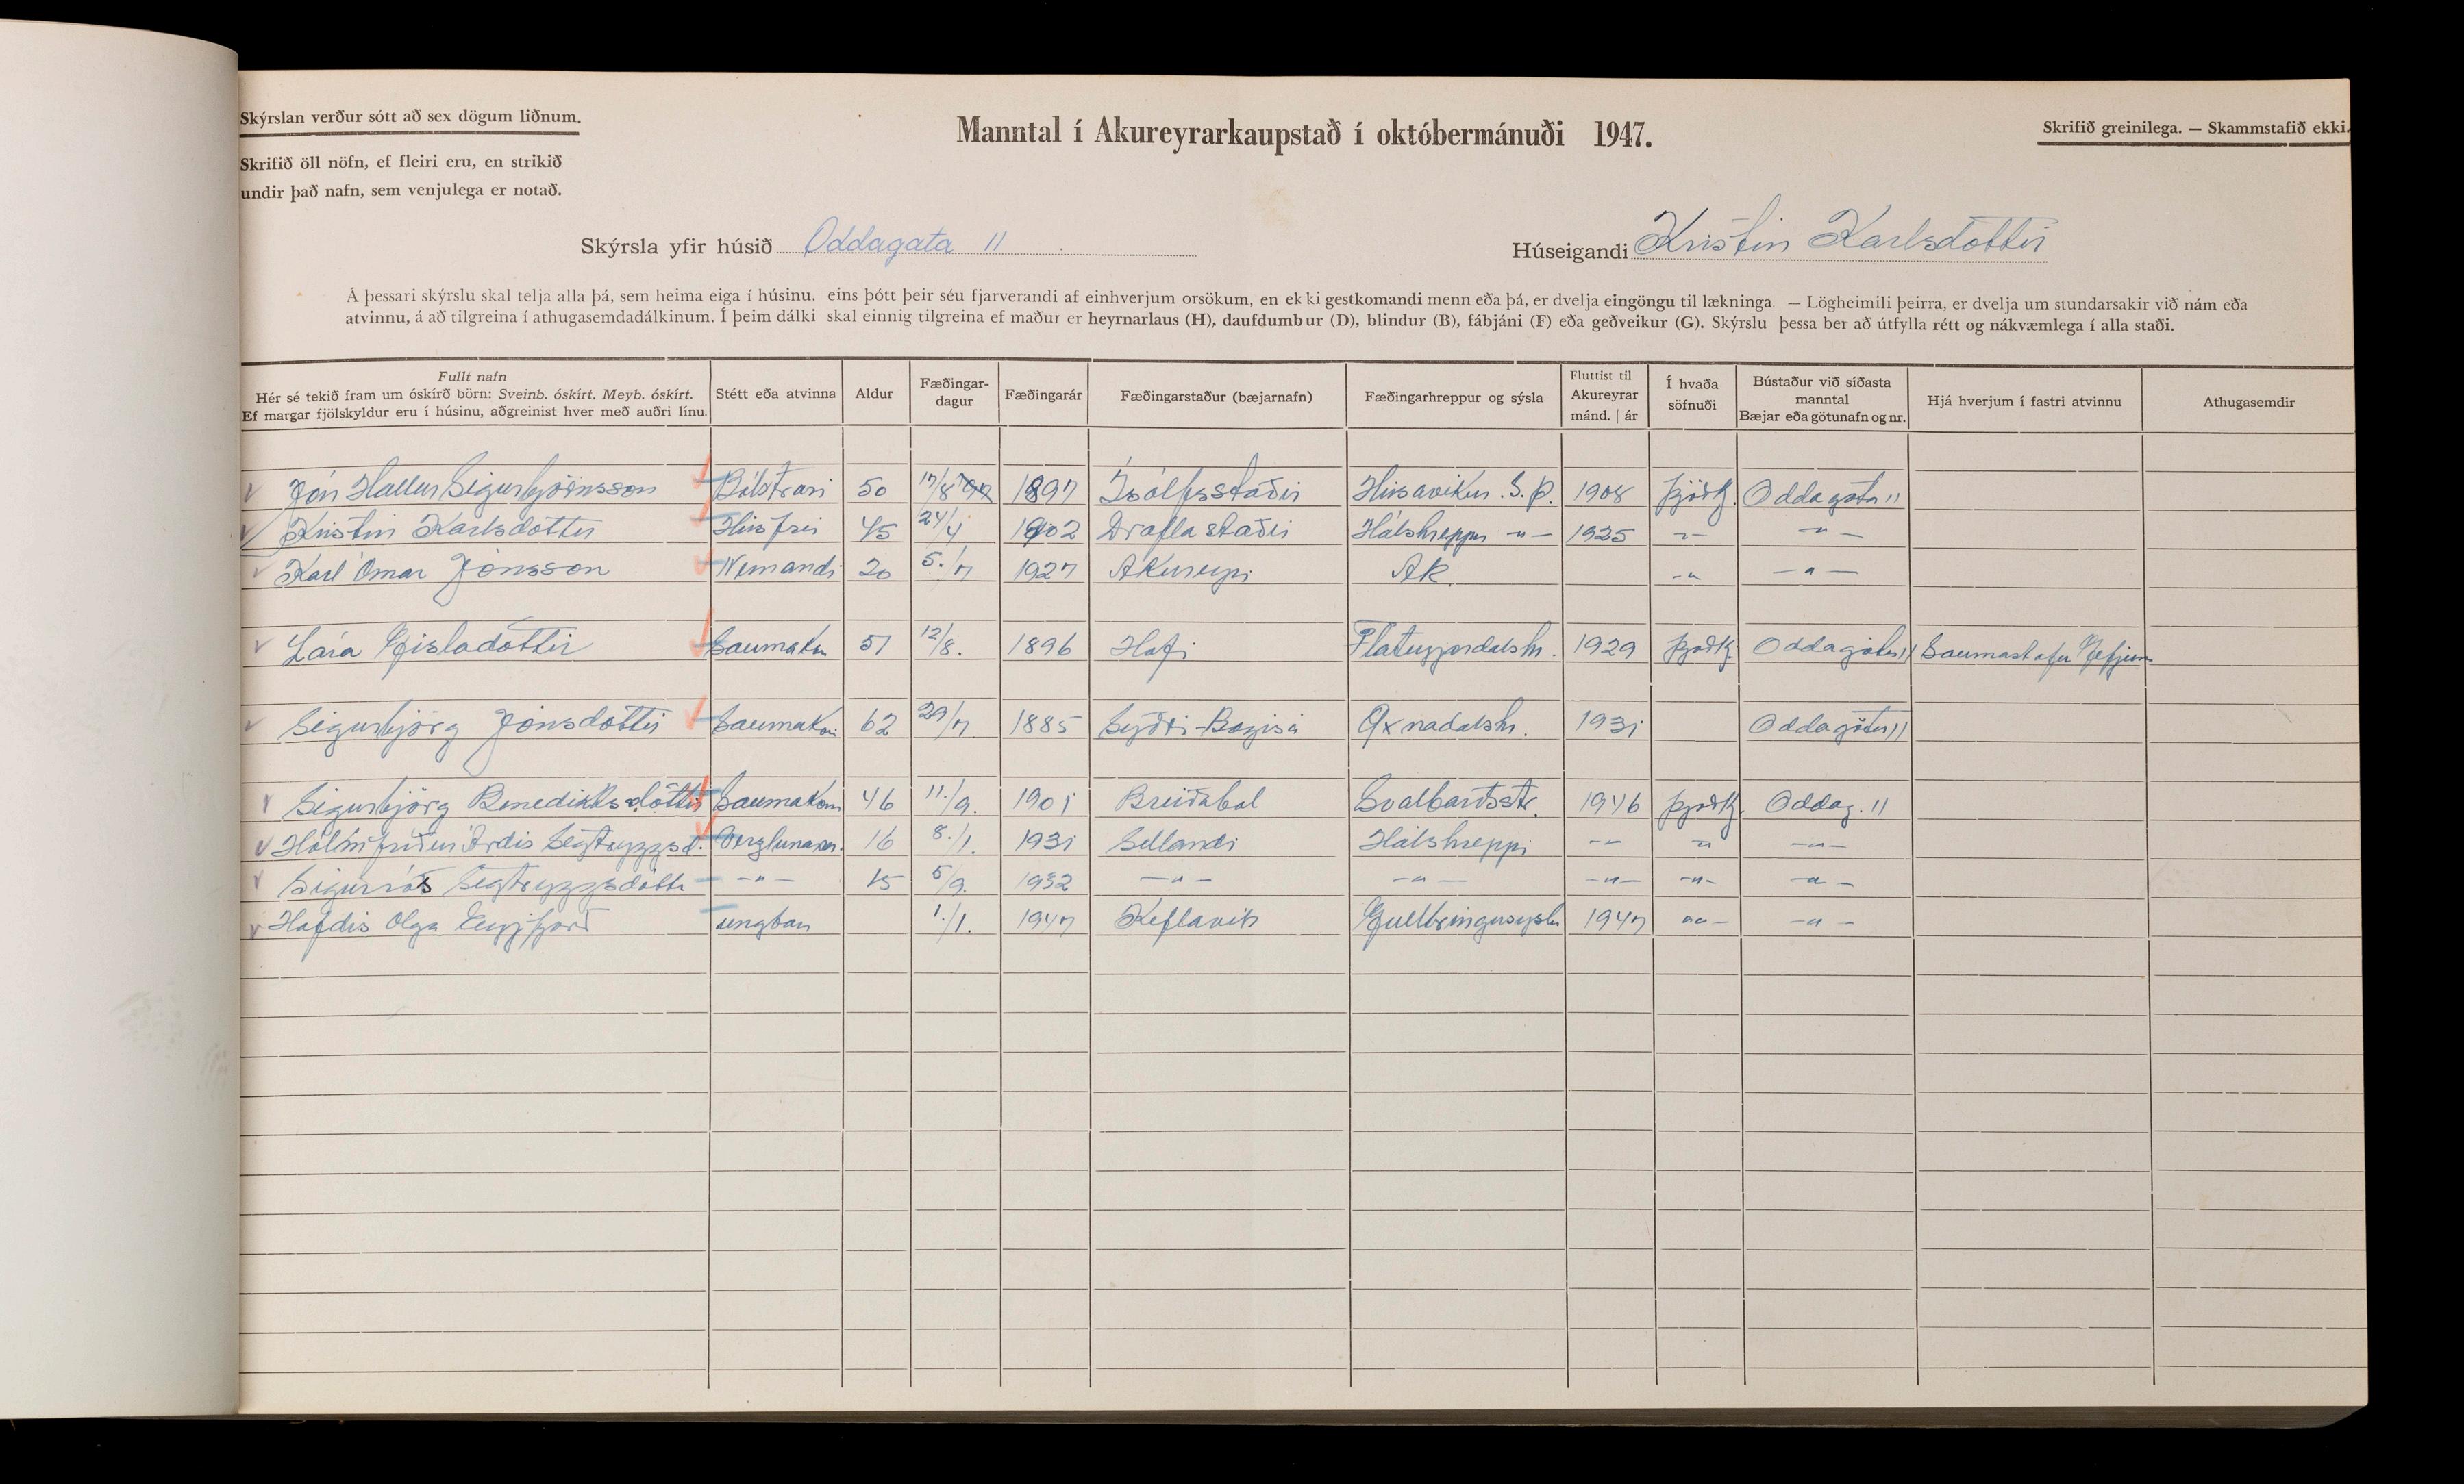 Skýrslan verður sótt að sex dögum liðnum.
Manntal í Akureyrarkaupstað í októbermánuði 1947.
Skrifið greinilega. — Skammstafið ekki.
Skrifið öll nöfn, ef fleiri eru, en strikið
undir það nafn, sem venjulega er notað.
Skýrsla yfir húsið Oddagata 11
Húseigandi Kristín Karlsdóttir
Á þessari skýrslu skal telja alla þá, sem heima eiga í húsinu, eins þótt þeir séu fjarverandi af einhverjum orsökum, en ekki gestkomandi menn eða þá, er dvelja eingöngu til lækninga. — Lögheimili þeirra, er dvelja um stundarsakir við nám eða
atvinnu, á að tilgreina í athugasemdadálkinum. Í þeim dálki skal einnig tilgreina ef maður er heyrnarlaus (H), daufdumbur (D), blindur (B), fábjáni (F) eða geðveikur (G). Skýrslu þessa ber að útfylla rétt og nákvæmlega í alla staði.
Fullt nafn
Hér sé tekið fram um óskírð börn: Sveinb. óskírt. Meyb. óskírt.
Ef margar fjölskyldur eru í húsinu, aðgreinist hver með auðri línu.
Stétt eða atvinna
Aldur
Fæðingar-
dagur
Fæðingarár
Fæðingarstaður (bæjarnafn)
Fæðingarhreppur og sýsla
Fluttist til
Akureyrar
mánd. | ár
Í hvaða
söfnuði
Bústaður við síðasta
manntal
Bæjar eða götunafn og nr.
Hjá hverjum í fastri atvinnu
Athugasemdir
Jón Hallur Sigurbjörnsson Bólstrari 50 17/8 1897 Ísólfsstaðir Húsavíkur. S. Þ. 1908 Þjóðk. Oddagötu 11
Kristín Karlsdóttir Húsfrú 45 24/4 1902 Draflastaðir Hálshreppur -"- 1925 -"- -"-
Karl Ómar Jónsson Nemandi 20 5./7 1927 Akureyri Ak. -"- -"-
Lára Gísladóttir Saumakon 51 12/8. 1896 Hofi Flateyjardalshr. 1929 Þjóðk. Oddagötu 11 Saumastofu Gefjunn
Sigurbjörg Jónsdóttir Saumakon 62 29/7 1885 Syðri-Bægisá Öxnadalshr. 1931 Oddagötu 11
Sigurbjörg Benediktsdóttir Saumakona 46 11./9. 1901 Breiðaból Svalbarðsstr. 1946 Þjóðk. Oddag. 11
Hólmfríður Árdís Sigtryggsd. 16 8./1. 1931 Sellandi Hálshreppi -"- -"- -"-
Sigurrós Sigtryggsdóttir -"- 15 5/9. 1932 -"- -"- -"- -"- -"-
Hafdís Olga Eyfjörð ungbarn 1./1. 1947 Keflavík Gullbringusýslu 1947 -"- -"-